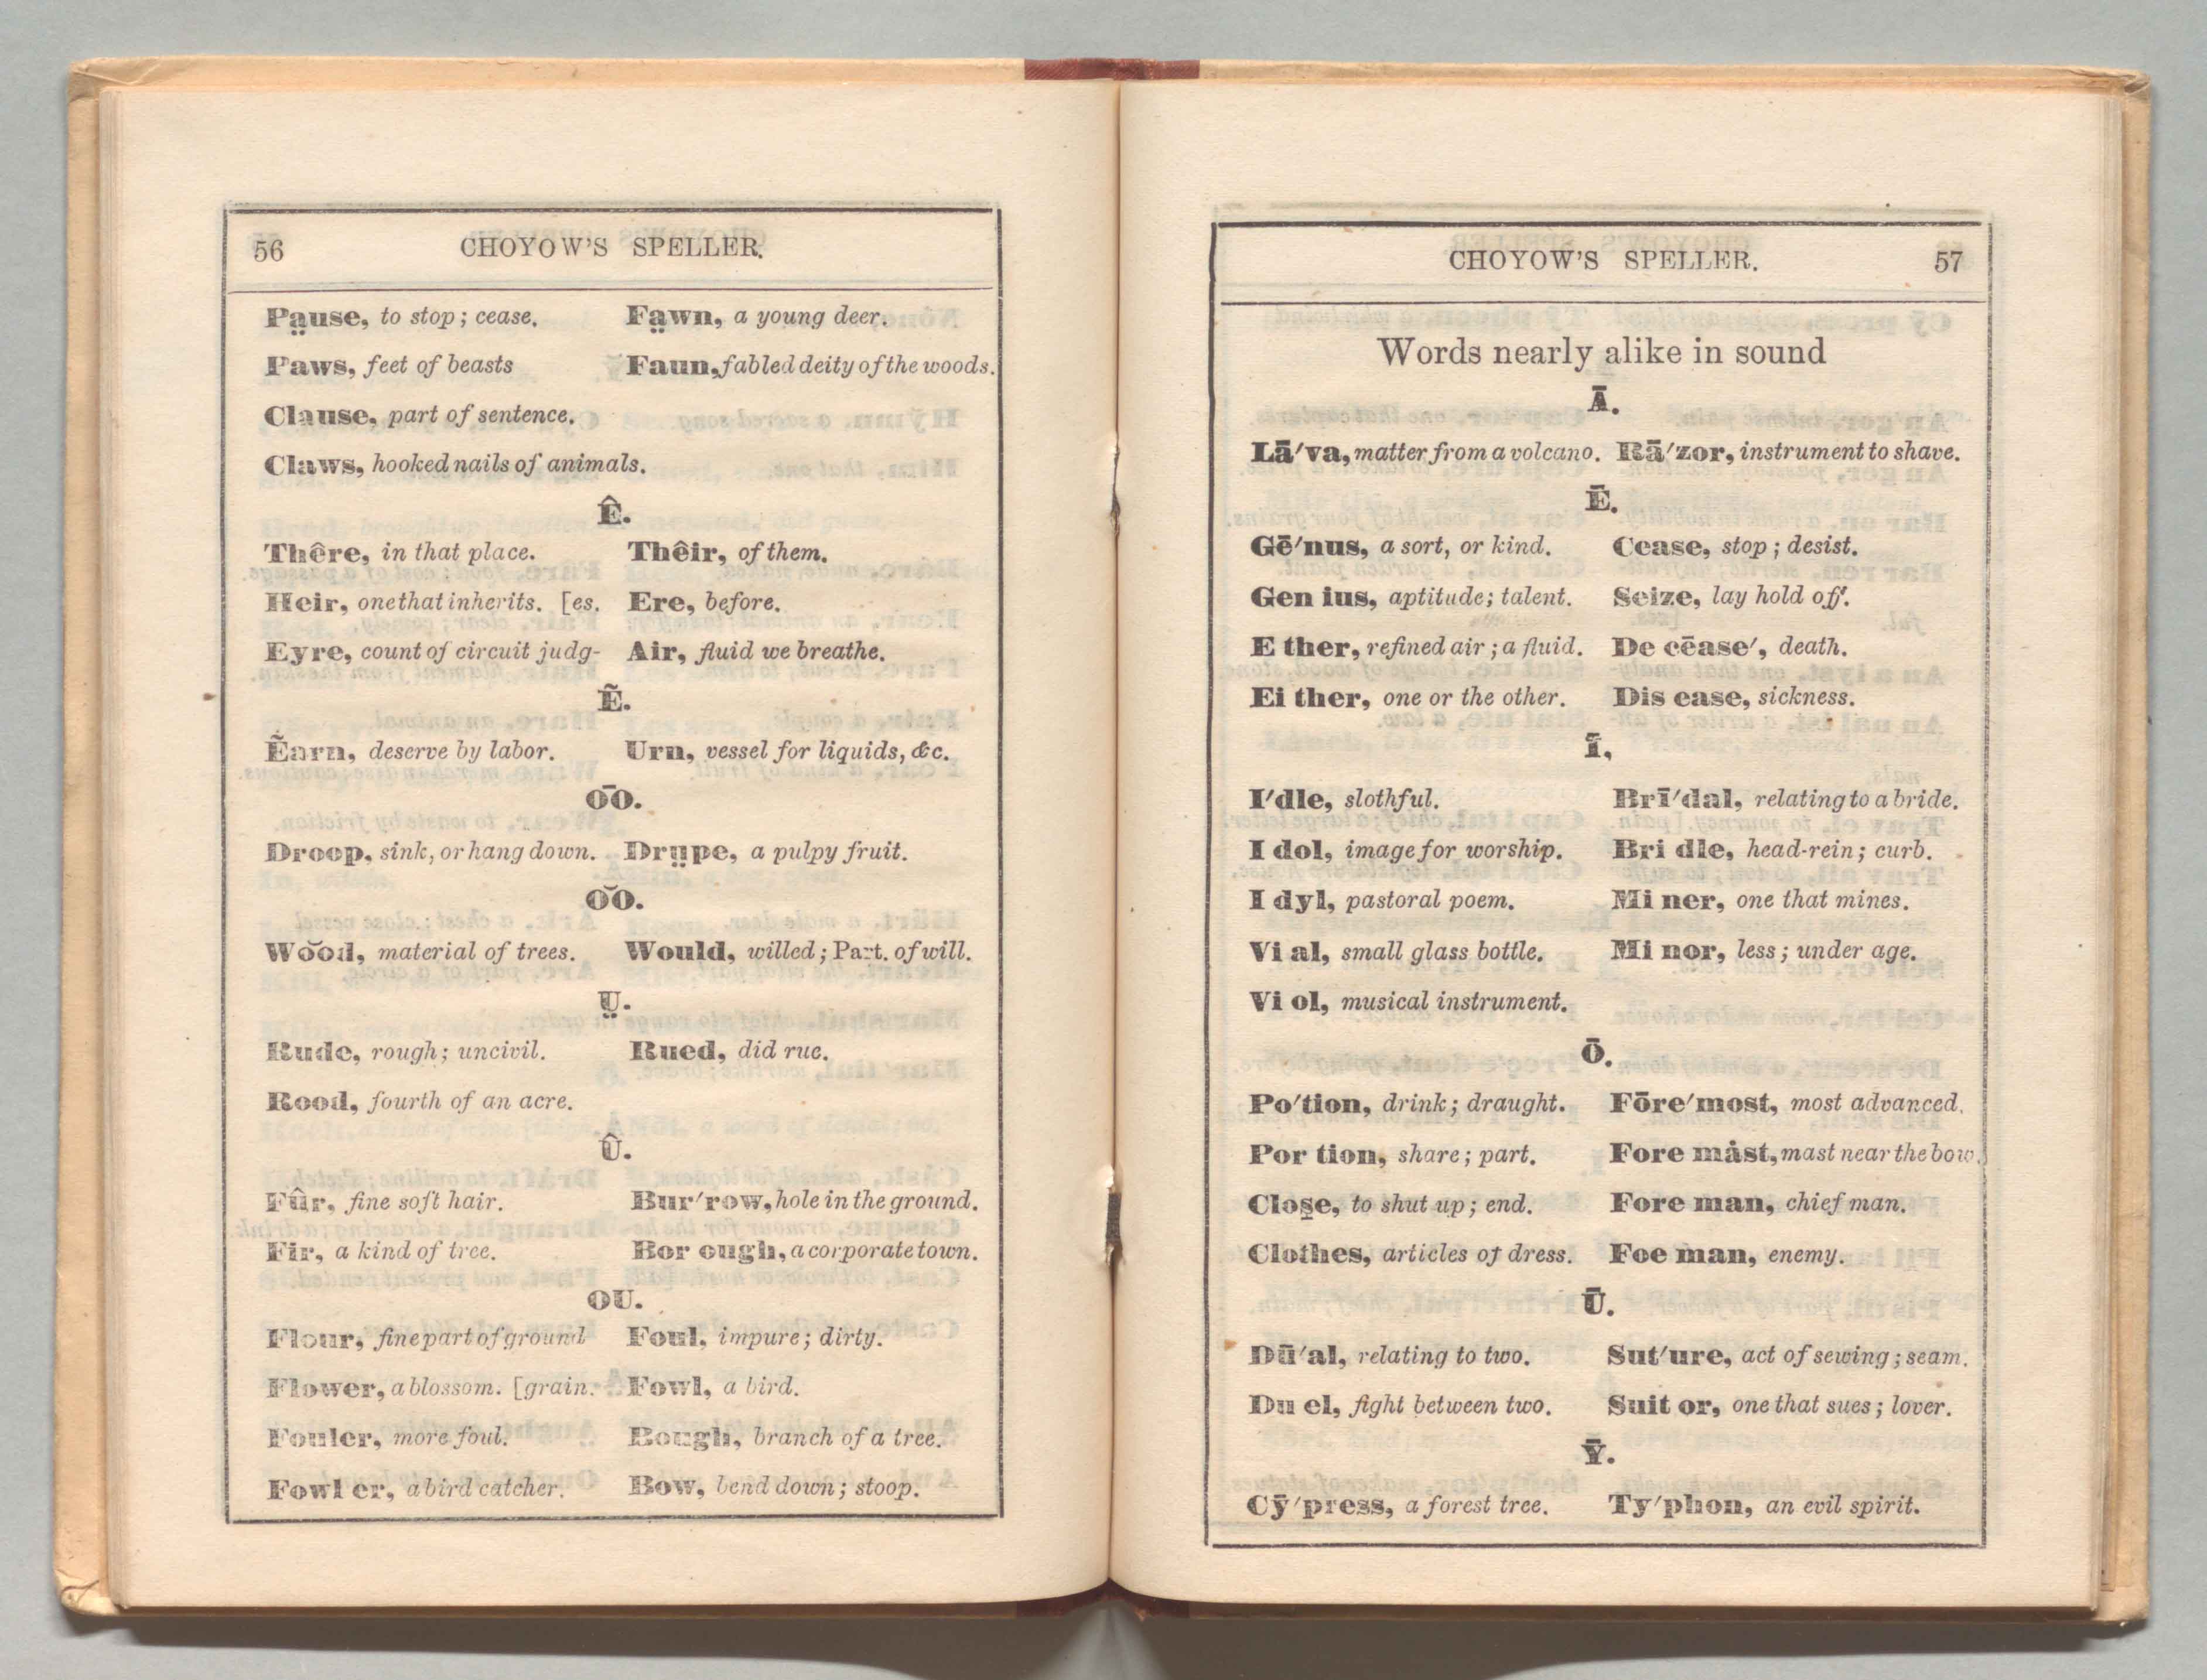 56 CHOYOW'S SPELLER.
Pa̤use, to stop; cease. Fa̤wn, a young deer.
Paws, feet of beasts Faun, fabled deity of the woods.
Clause, part of sentence.
Claws, hooked nails of animals.
Ê.
Thêre, in that place. Thêir, of them.
Heir, one that inherits. [es. Ere, before.
Eyre, count of circuit judg- Air, fluid we breathe.
Ẽ.
Ẽarn, deserve by labor. Urn, vessel for liquids, &c.
O͞O.
Droop, sink, or hang down. Drṳpe, a pulpy fruit.
O͝O.
Wo͝od, material of trees. Would, willed; Part. of will.
Ṳ.
Rude, rough; uncivil. Rued, did rue.
Rood, fourth of an acre.
Û.
Fûr, fine soft hair. Bur′row, hole in the ground.
Fir, a kind of tree. Bor ough, a corporate town.
OU.
Flour, fine part of ground Foul, impure; dirty.
Flower, a blossom. [grain. Fowl, a bird.
Fouler, more foul. Bough, branch of a tree.
Fowl er, a bird catcher. Bow, bend down; stoop.
CHOYOW'S SPELLER. 57
Words nearly alike in sound
Ā.
Lā′va, matter from a volcano. Rā′zor, instrument to shave.
Ē.
Gē′nus, a sort, or kind. Cease, stop; desist.
Gen ius, aptitude; talent. Seize, lay hold off.
E ther, refined air; a fluid. De cēase′, death.
Ei ther, one or the other. Dis ease, sickness.
Ī.
I′dle, slothful. Brī′dal, relating to a bride.
I dol, image for worship. Bri dle, head-rein; curb.
I dyl, pastoral poem. Mi ner, one that mines.
Vi al, small glass bottle. Mi nor, less; under age.
Vi ol, musical instrument.
Ō.
Po′tion, drink; draught. Fōre′most, most advanced.
Por tion, share; part. Fore måst, mast near the bow.
Clos̱e, to shut up; end. Fore man, chief man.
Clothes, articles of dress. Foe man, enemy.
Ū.
Dū′al, relating to two. Sut′ure, act of sewing; seam.
Du el, fight between two. Suit or, one that sues; lover.
Ȳ.
Cȳ′press, a forest tree. Ty′phon, an evil spirit.